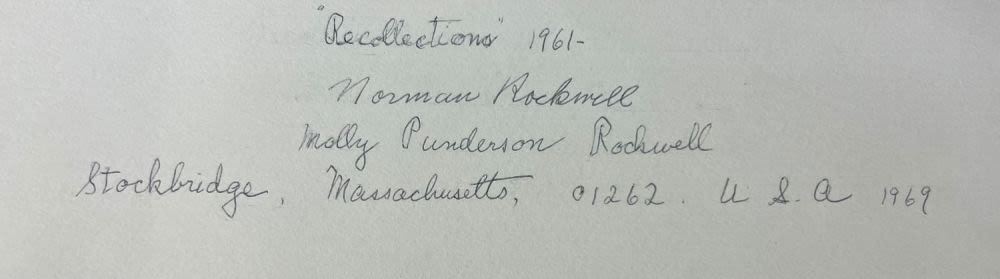 "Recollections" 1961-
Norman Rockwell
Molly Punderson Rockwell
Stockbridge, Massachusetts, 01262. U S. A 1969